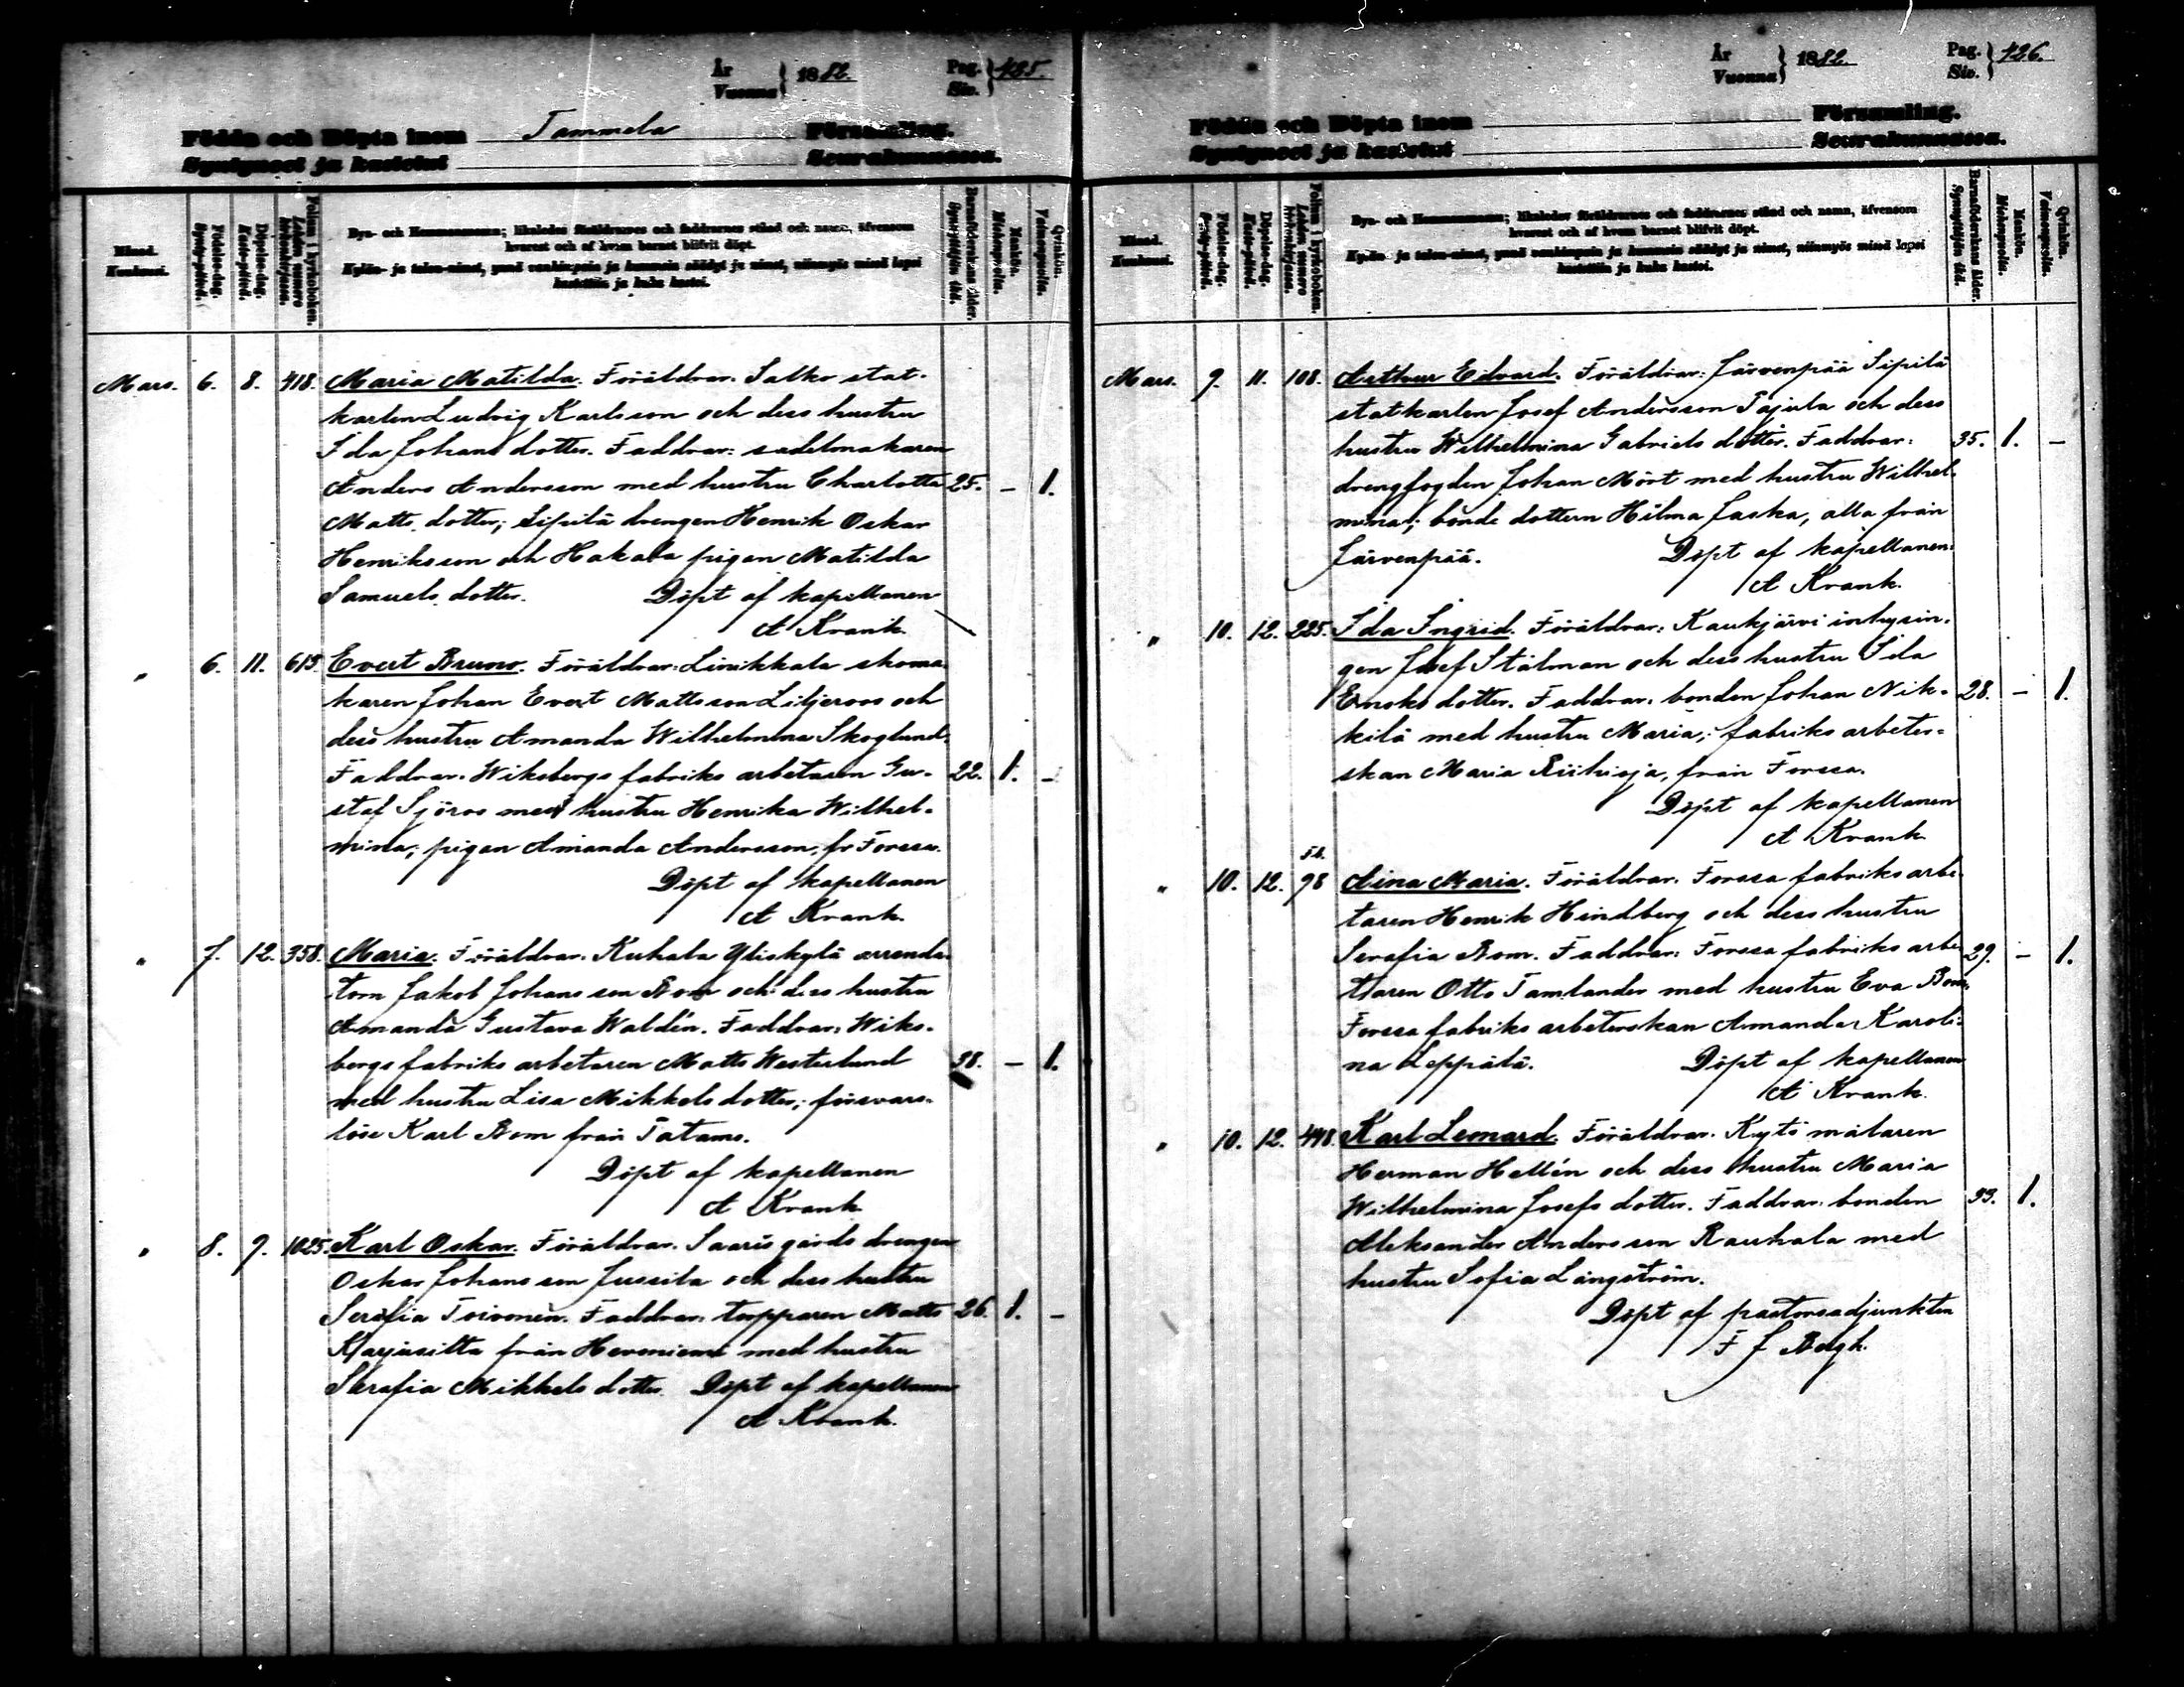 År
Vuonna } 1882. Pag.
Siv. } 425.
Födda och Döpta inom Tammela Församling.
Syntyneet ja kastetut Seurakunnassa.
Månad.
Kuukausi.
Födelse-dag.
Synty-päivä.
Döpelse-dag.
Kaste-päivä.
Folium i kyrkoboken.
Lehden numero kirkonkirjassa.
Byn- och Hemmansnamn; likaledes föräldrarnes och faddrarnes stånd och namn, äfvensom
hvarest och af hvem barnet blifvit döpt.
Kylän- ja talon-nimet, ynnä vanhimpain ja kummein säädyt ja nimet, niinmyös missä lapsi
kastettiin ja kuka kastoi.
Barnaföderskans ålder.
Synnyttäjän ikä.
Mankön.
Miehenpuolta.
Qvinkön.
Vaimonpuolta.
Mars. 6. 8. 418. Maria Matilda. Föräldrar. Salko stat-
karlen Ludvig Karlsson och dess hustru
Ida Johans dotter. Faddrar: sadelmakaren
Anders Andersson med hustru Charlotta 25. – 1.
Matts dotter; Sipilä drengen Henrik Oskar
Henriksson och Hakala pigan Matilda
Samuels dotter. Döpt af kapellanen
A Krank.
" 6. 11. 615. Evert Bruno. Föräldrar: Linikkala skoma-
karen Johan Evert Mattsson Liljeroos och
dess hustru Amanda Wilhelmina Skoglund.
Faddrar. Wiksbergs fabriks arbetaren Gu- 22. 1. –
staf Sjöros med hustru Henrika Wilhel-
mina; pigan Amanda Andersson, fr Forssa.
Döpt af kapellanen
A Krank.
" 7. 12. 358. Maria. Föräldrar. Kuhala Yliskylä arrenda-
torn Jakob Johansson Bom och dess hustru
Amanda Gustava Waldén. Faddrar: Wiks-
bergs fabriks arbetaren Matts Westerlund 38. – 1.
med hustru Lisa Mikkels dotter; försvars-
löse Karl Bom från Tatams.
Döpt af kapellanen
A Krank
" 8. 9. 1025. Karl Oskar. Föräldrar. Saaris gårds drengen
Oskar Johansson Jussila och dess hustru
Serafia Toivonen. Faddrar: torpparen Matts 26. 1. –
Karjasilta från Herniemi med hustru
Serafia Mikkels dotter. Döpt af kapellanen
A Krank.
År
Vuonna } 1882. Pag.
Siv. } 426.
Födda och Döpta inom Församling.
Syntyneet ja kastetut Seurakunnassa.
Månad.
Kuukausi.
Födelse-dag.
Synty-päivä.
Döpelse-dag.
Kaste-päivä.
Folium i kyrkoboken.
Lehden numero kirkonkirjassa.
Byn- och Hemmansnamn; likaledes föräldrarnes och faddrarnes stånd och namn, äfvensom
hvarest och af hvem barnet blifvit döpt.
Kylän- ja talon-nimet, ynnä vanhimpain ja kummein säädyt ja nimet, niinmyös missä lapsi
kastettiin ja kuka kastoi.
Barnaföderskans ålder.
Synnyttäjän ikä.
Mankön.
Miehenpuolta.
Qvinkön.
Vaimonpuolta.
Mars. 9. 11. 108. Arthur Edvard. Föräldrar: Järvenpää Sipilä
statkarlen Josef Andersson Pajula och dess
hustru Wilhelmina Gabriels dotter. Faddrar: 35. 1. –
drengfogden Johan Mört med hustru Wilhel-
mina; bonde dottern Hilma Jaska, alla från
Järvenpää. Döpt af kapellanen:
A Krank.
" 10. 12. 225. Ida Ingrid. Föräldrar: Kaukjärvi inhysin-
gen Josef Stålman och dess hustru Ida
Enoks dotter. Faddrar. bonden Johan Nik- 28. – 1.
kilä med hustru Maria; fabriks arbeter-
skan Maria Riihioja, från Forssa.
Döpt af kapellanen
A Krank
" 10. 12. 98 Aina Maria. Föräldrar. Forssa fabriks arbe-
taren Henrik Hindberg och dess hustru
Serafia Bom. Faddrar: Forssa fabriks arbe- 29. – 1.
taren Otto Tamlander med hustru Eva Bom,
Forssa fabriks arbeterskan Amanda Karoli-
na Leppälä. Döpt af kapellanen
A Krank.
" 10. 12. 448. Karl Leonard. Föräldrar. Kytö målaren
Herman Hellén och dess hustru Maria
Wilhelmina Josefs dotter. Faddrar: bonden 33. 1.
Aleksander Andersson Rauhala med
hustru Sofia Långström.
Döpt af pastorsadjunkten
F J Bergh.